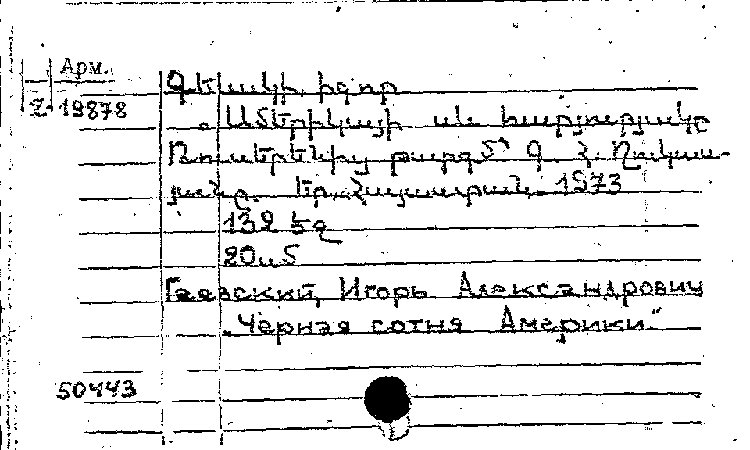 Арм.
Z-19878
Գեևսկի, Իգոր
Ամերիկայի սև հարյուրյակը
Ռուսերենից թարգմ՝ Գ. Հ. Ղուկաս-
յանը. Եր., Հայաստան, 1973
132 էջ
20սմ
Геевский, Игорь Александрович
„Черная сотня Америки."
50443